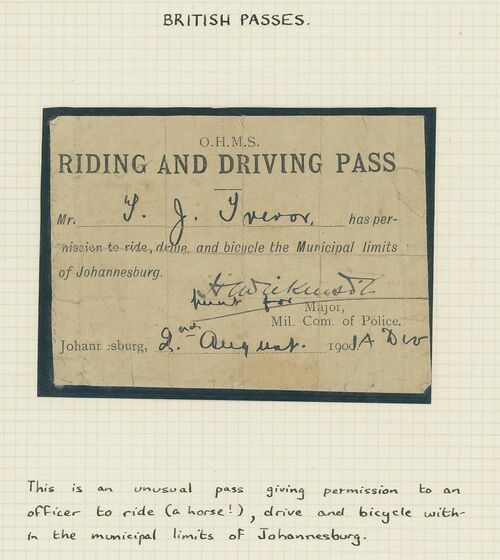 BRITISH PASSES.
O.H.M.S.
RIDING AND DRIVING PASS
Mr. T. J. Trevor, has per-
mission to ride, drive, and bicycle the Municipal limits
of Johannesburg.
for Major,
Mil. Com. of Police.
Johannesburg, 2nd August. 190 A Div
This is an unusual pass giving permission to an
officer to ride (a horse!), drive and bicycle with-
in the municipal limits of Johannesburg.